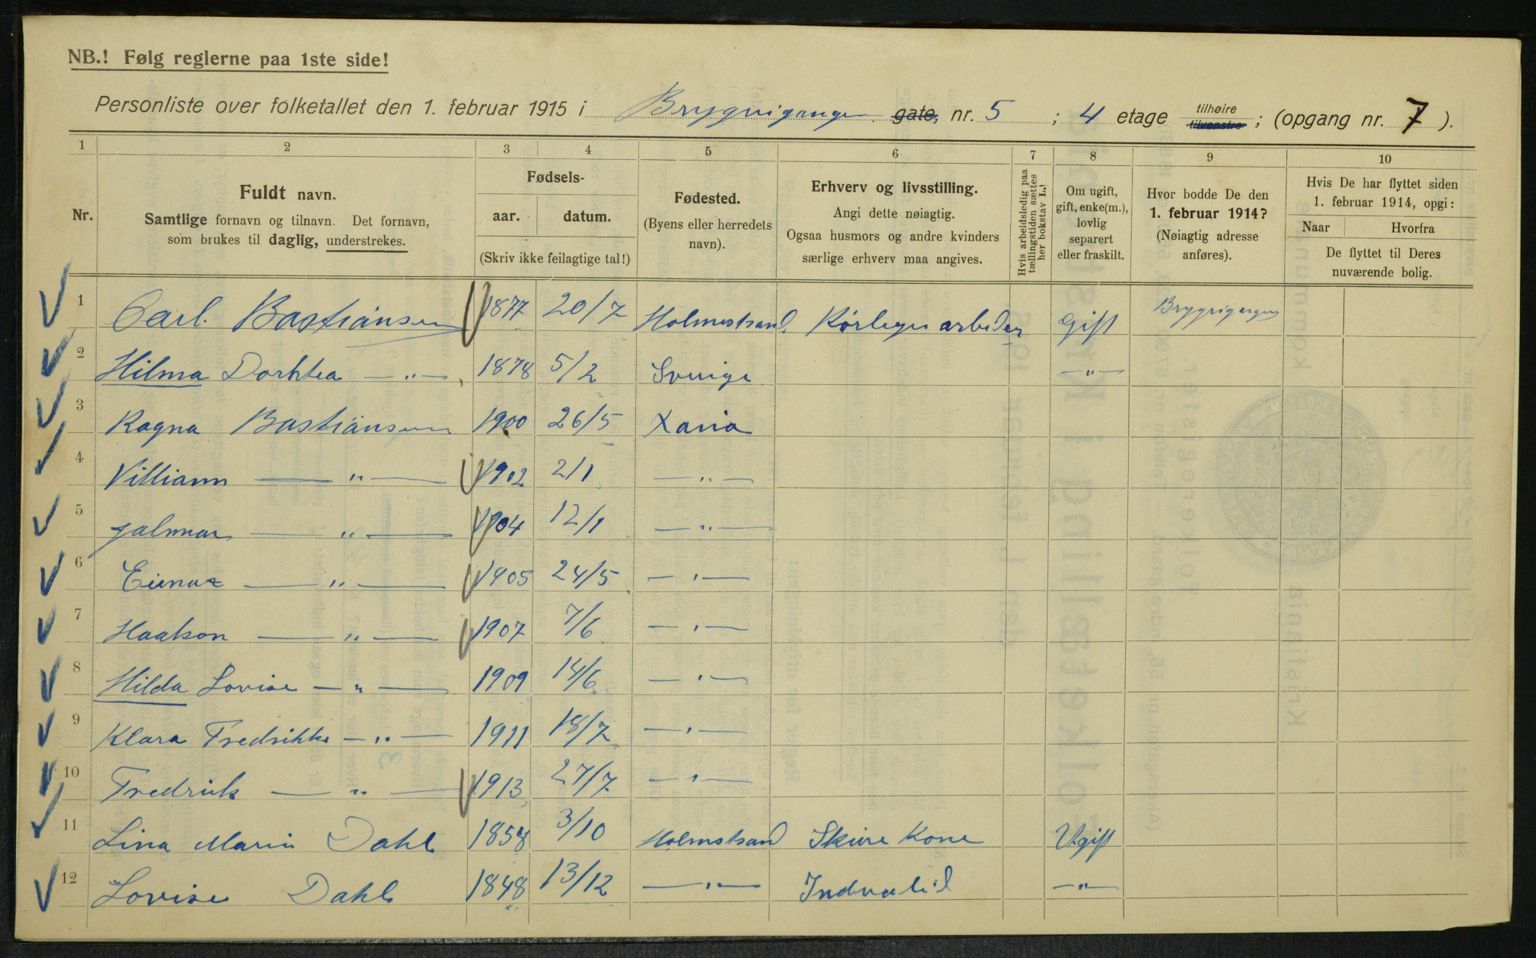 NB.! Følg reglerne paa 1ste side!
Personliste over folketallet den 1. februar 1915 i Bryggerigangen gate, nr. 5 ; 4 etage tilhøire tilvenstre ; (opgang nr. 7 ).
1 2 3 4 5 6 7 8 9 10
Nr.
Fuldt navn.
Samtlige fornavn og tilnavn. Det fornavn,
som brukes til daglig, understrekes.
Fødsels-
aar. datum.
(Skriv ikke feilagtige tal!)
Fødested.
(Byens eller herredets
navn).
Erhverv og livsstilling.
Angi dette nøiagtig.
Ogsaa husmors og andre kvinders
særlige erhverv maa angives.
Hvis arbeidsledig paa
tællingstiden sættes
her bokstav L.!
Om ugift,
gift, enke(m.),
lovlig
separert
eller fraskilt.
Hvor bodde De den
1. februar 1914?
(Nøiagtig adresse
anføres).
Hvis De har flyttet siden
1. februar 1914, opgi:
Naar Hvorfra
De flyttet til Deres
nuværende bolig.
1 Carl Bastiansen 1877 20/7 Holmestrand Kørleger arbeider Gift Bryggerigangen
2 Hilma Dorhtea — „ — 1878 5/2 Sverige — „ —
3 Ragna Bastiansen 1900 26/5 Xania
4 Villiam — „ — 1902 2/1 — „ —
5 Jalmar — „ — 1904 12/1 — „ —
6 Einar — „ — 1905 24/5 — „ —
7 Haakon — „ — 1907 7/6 — „ —
8 Hilda Lovise — „ — 1909 14/6 — „ —
9 Klara Fredrikke — „ — 1911 18/7 — „ —
10 Fredrik — „ — 1913 27/7 — „ —
11 Lina Marie Dahl 1858 3/10 Holmstrand Skure Kone Ugift
12 Lovise Dahl 1848 13/12 — „ — Indvalid — „ —